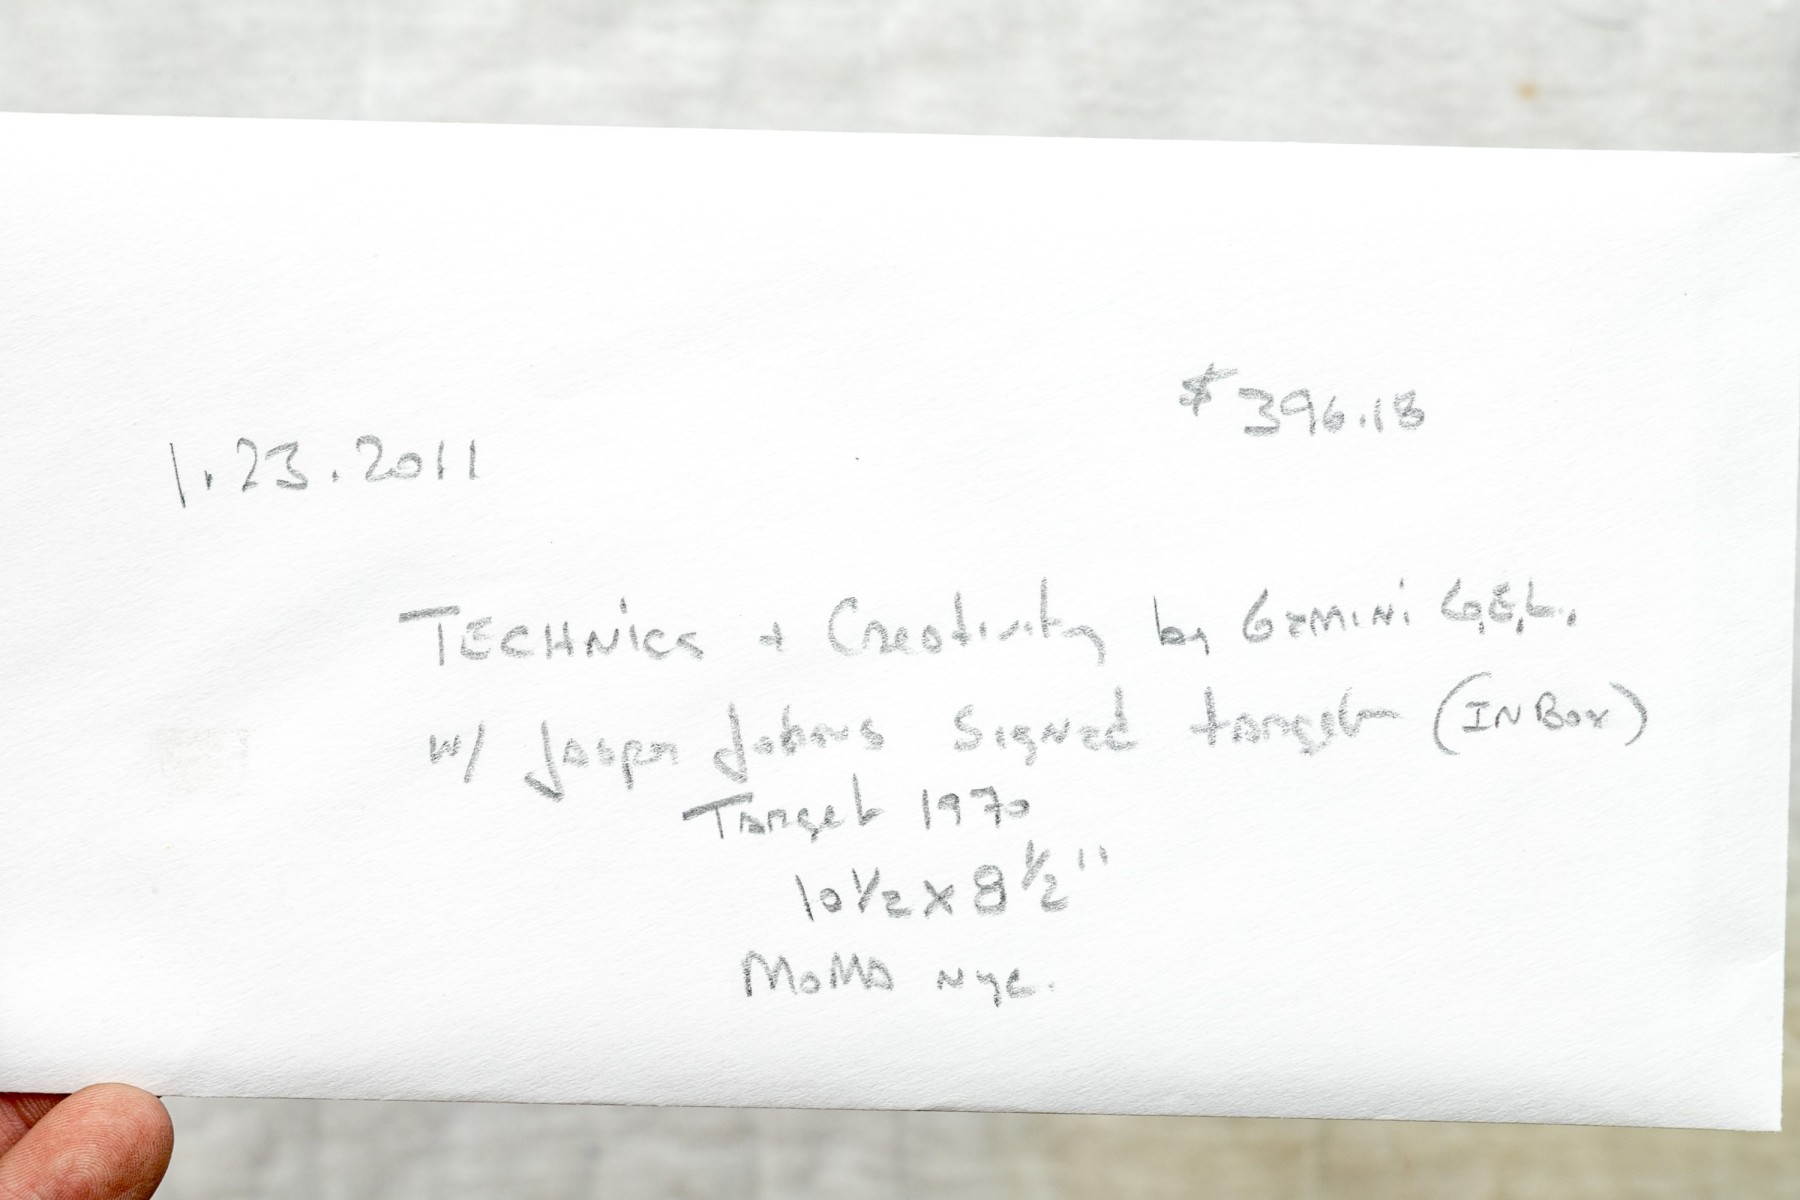 $396.18
1.23.2011
TECHNICS + Creativity by GEMINI G.E.L.
w/ Jasper Johns Signed target (IN Box)
Target 1970
10 1/2 x 8 1/2"
MoMA NYC.